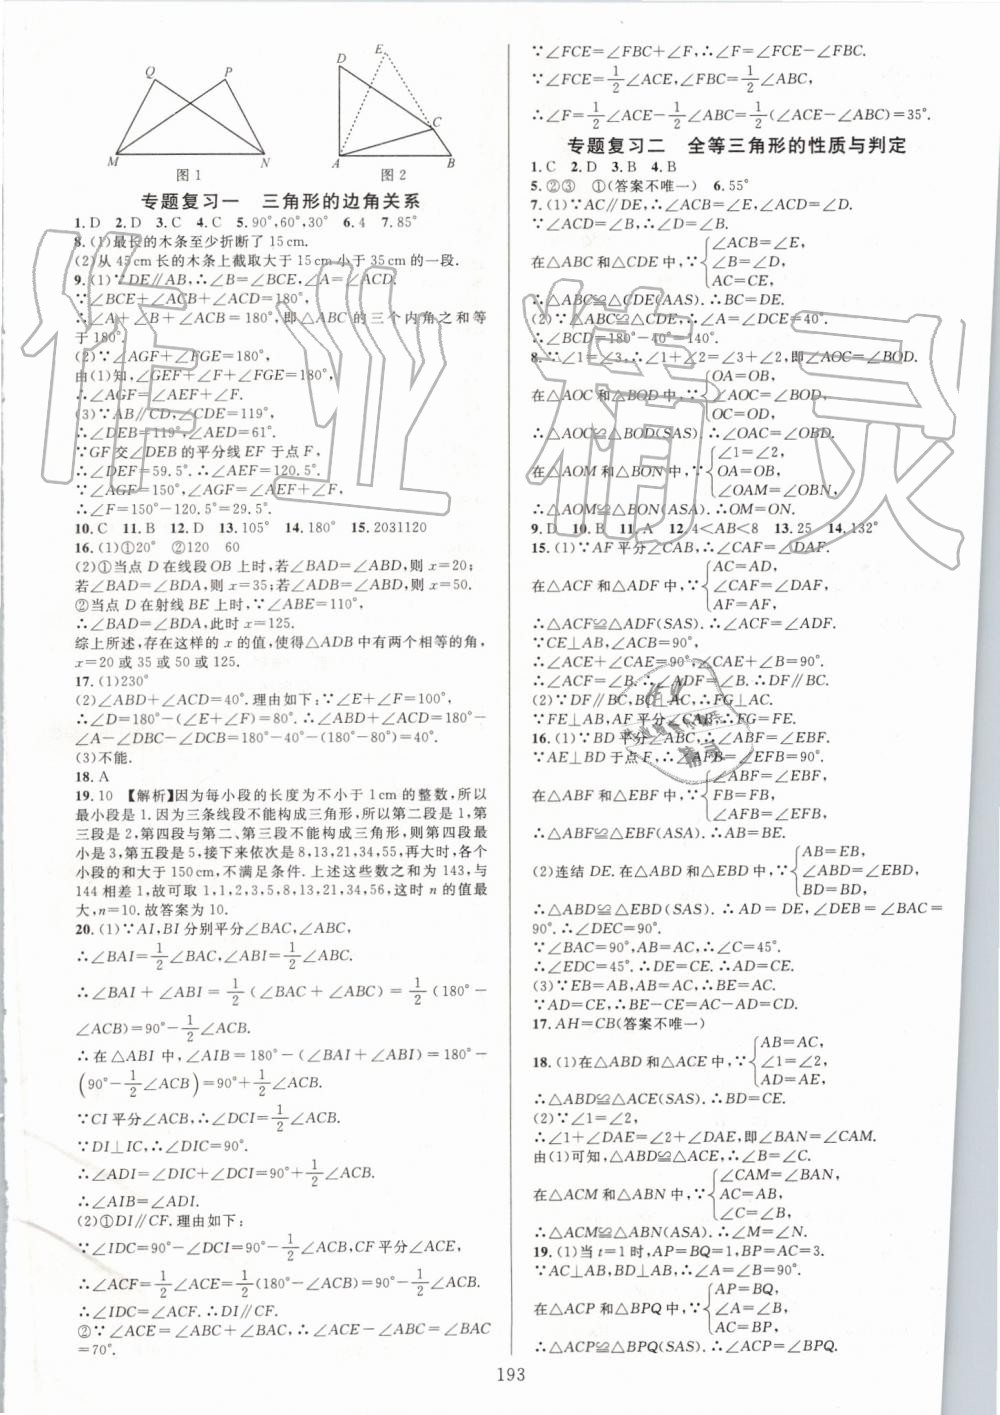 Q P M N
图1
D E C A B
图2
专题复习一 三角形的边角关系
1.D 2.D 3.C 4.C 5.90°,60°,30° 6.4 7.85°
8.(1)最长的木条至少折断了15cm.
(2)从45cm长的木条上截取大于15cm小于35cm的一段.
9.(1)∵DE∥AB,∴∠B=∠BCE,∠A=∠ACD.
∵∠BCE+∠ACB+∠ACD=180°,
∴∠A+∠B+∠ACB=180°,即△ABC的三个内角之和等
于180°.
(2)∵∠AGF+∠FGE=180°,
由(1)知,∠GEF+∠F+∠FGE=180°,
∴∠AGF=∠AEF+∠F.
(3)∵AB∥CD,∠CDE=119°,
∴∠DEB=119°,∠AED=61°.
∵GF交∠DEB的平分线EF于点F,
∴∠DEF=59.5°.∴∠AEF=120.5°.
∵∠AGF=150°,∠AGF=∠AEF+∠F,
∴∠F=150°-120.5°=29.5°.
10.C 11.B 12.D 13.105° 14.180° 15.2031120
16.(1)①20° ②120 60
(2)①当点D在线段OB上时,∵∠BAD=∠ABD,则x=20;
若∠BAD=∠BDA,则x=35;若∠ADB=∠ABD,则x=50.
②当点D在射线BE上时,∵∠ABE=110°,
∴∠BAD=∠BDA,此时x=125.
综上所述,存在这样的x的值,使得△ADB中有两个相等的角,
x=20或35或50或125.
17.(1)230°
(2)∠ABD+∠ACD=40°.理由如下:∵∠E+∠F=100°,
∴∠D=180°-(∠E+∠F)=80°.∴∠ABD+∠ACD=180°-
∠A-∠DBC-∠DCB=180°-40°-(180°-80°)=40°.
(3)不能.
18.A
19.10 【解析】因为每小段的长度为不小于1cm的整数,所以
最小段是1.因为三条线段不能构成三角形,所以第二段是1,第
三段是2,第四段与第二、第三段不能构成三角形,则第四段最
小是3,第五段是5,接下来依次是8,13,21,34,55,再大时,各个
小段的和大于150cm,不满足条件.上述这些数之和为143,与
144相差1,故可取1,1,2,3,5,8,13,21,34,56,这时n的值最
大,n=10.故答案为10.
20.(1)∵AI,BI分别平分∠BAC,∠ABC,
∴∠BAI=1/2∠BAC,∠ABI=1/2∠ABC.
∴∠BAI+∠ABI=1/2(∠BAC+∠ABC)=1/2(180°-
∠ACB)=90°-1/2∠ACB.
∴在△ABI中,∠AIB=180°-(∠BAI+∠ABI)=180°-
(90°-1/2∠ACB)=90°+1/2∠ACB.
∵CI平分∠ACB,∴∠DCI=1/2∠ACB.
∵DI⊥IC,∴∠DIC=90°.
∴∠ADI=∠DIC+∠DCI=90°+1/2∠ACB.
∴∠AIB=∠ADI.
(2)①DI∥CF.理由如下:
∵∠IDC=90°-∠DCI=90°-1/2∠ACB,CF平分∠ACE,
∴∠ACF=1/2∠ACE=1/2(180°-∠ACB)=90°-1/2∠ACB.
∴∠IDC=∠ACF.∴DI∥CF.
②∵∠ACE=∠ABC+∠BAC,∴∠ACE-∠ABC=∠BAC
=70°.
∵∠FCE=∠FBC+∠F,∴∠F=∠FCE-∠FBC.
∵∠FCE=1/2∠ACE,∠FBC=1/2∠ABC,
∴∠F=1/2∠ACE-1/2∠ABC=1/2(∠ACE-∠ABC)=35°.
专题复习二 全等三角形的性质与判定
1.C 2.D 3.B 4.B
5.②③ ①(答案不唯一) 6.55°
7.(1)∵AC∥DE,∴∠ACB=∠E,∠ACD=∠D.
∵∠ACD=∠B,∴∠B=∠D.
在△ABC和△CDE中,∵{∠ACB=∠E,
∠B=∠D,
AC=CE,
∴△ABC≌△CDE(AAS).∴BC=DE.
(2)∵△ABC≌△CDE,∴∠A=∠DCE=40°.
∴∠BCD=180°-40°=140°.
8.∵∠1=∠3,∴∠1+∠2=∠3+∠2,即∠AOC=∠BOD.
在△AOC和△BOD中,∵{OA=OB,
∠AOC=∠BOD,
OC=OD,
∴△AOC≌△BOD(SAS).∴∠OAC=∠OBD.
在△AOM和△BON中,∵{∠1=∠2,
OA=OB,
∠OAM=∠OBN,
∴△AOM≌△BON(ASA).∴OM=ON.
9.D 10.B 11.A 12.4<AB<8 13.25 14.132°
15.(1)∵AF平分∠CAB,∴∠CAF=∠DAF.
在△ACF和△ADF中,∵{AC=AD,
∠CAF=∠DAF,
AF=AF,
∴△ACF≌△ADF(SAS).∴∠ACF=∠ADF.
∵CE⊥AB,∠ACB=90°,
∴∠ACE+∠CAE=90°,∠CAE+∠B=90°.
∴∠ACF=∠B.∴∠ADF=∠B.∴DF∥BC.
(2)∵DF∥BC,BC⊥AC,∴FG⊥AC.
∵FE⊥AB,AF平分∠CAB,∴FG=FE.
16.(1)∵BD平分∠ABC,∴∠ABF=∠EBF.
∵AE⊥BD于点F,∴∠AFB=∠EFB=90°.
∵{∠ABF=∠EBF,
FB=FB,
∠AFB=∠EFB,
∴△ABF≌△EBF(ASA).∴AB=BE.
(2)连结DE.在△ABD和△EBD中,∵{AB=EB,
∠ABD=∠EBD,
BD=BD,
∴△ABD≌△EBD(SAS).∴AD=DE,∠DEB=∠BAC=
90°.∴∠DEC=90°.
∵∠BAC=90°,AB=AC,∴∠C=45°.
∴∠EDC=45°.∴DE=CE.∴AD=CE.
(3)∵EB=AB,AB=AC,∴BE=AC.
∵AD=CE,∴BE-CE=AC-AD=CD.
17.AH=CB(答案不唯一)
18.(1)在△ABD和△ACE中,∵{AB=AC,
∠1=∠2,
AD=AE,
∴△ABD≌△ACE(SAS).∴BD=CE.
(2)∵∠1=∠2,
∴∠1+∠DAE=∠2+∠DAE,即∠BAN=∠CAM.
由(1)可知,△ABD≌△ACE,∴∠B=∠C.
在△ACM和△ABN中,∵{∠CAM=∠BAN,
AC=AB,
∠C=∠B,
∴△ACM≌△ABN(ASA).∴∠M=∠N.
19.(1)当t=1时,AP=BQ=1,BP=AC=3.
∵AC⊥AB,BD⊥AB,∴∠A=∠B=90°.
在△ACP和△BPQ中,∵{AP=BQ,
∠A=∠B,
AC=BP,
∴△ACP≌△BPQ(SAS).∴∠ACP=∠BPQ.
193
作业精灵